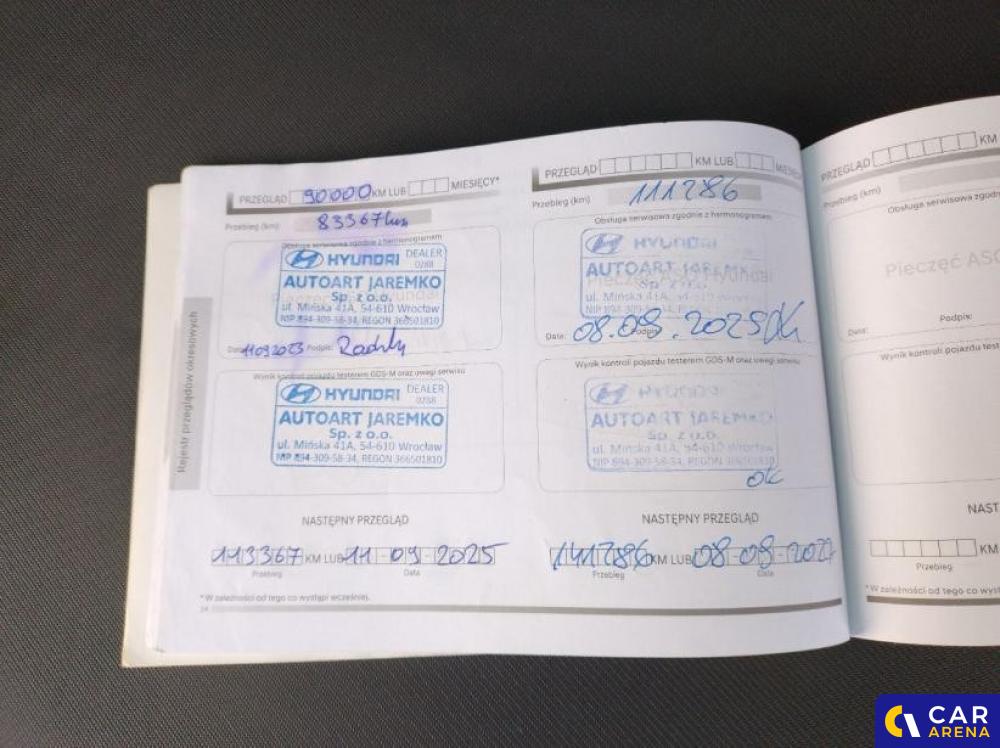 Rejestr przeglądów okresowych
PRZEGLĄD 90000 KM LUB MIESIĘCY*
Przebieg (km): 83367 km
Obsługa serwisowa zgodnie z harmonogramem
HYUNDAI DEALER
0288
AUTOART JAREMKO
Sp. z o.o.
ul. Mińska 41A, 54-610 Wrocław
NIP 894-309-58-34, REGON 366501810
Data: 11092023 Podpis:
Wynik kontroli pojazdu testerem GDS-M oraz uwagi serwisu
HYUNDAI DEALER
0288
AUTOART JAREMKO
Sp. z o.o.
ul. Mińska 41A, 54-610 Wrocław
NIP 894-309-58-34, REGON 366501810
NASTĘPNY PRZEGLĄD
113367 KM LUB 11-09-2025
Przebieg Data
* W zależności od tego co wystąpi wcześniej.
24
PRZEGLĄD KM LUB
Przebieg (km) 111286
Obsługa serwisowa zgodnie z harmonogramem
HYUNDAI
Pieczęć ASO Hyundai
AUTOART JAREMKO
Sp. z o.o.
ul. Mińska 41A, 54-610 Wrocław
NIP 894-309-58-34, REGON
Data: 08.09.2025 Podpis: ok
Wynik kontroli pojazdu testerem GDS-M oraz uwagi serwisu
HYUNDAI
AUTOART JAREMKO
Sp. z o.o.
ul. Mińska 41A, 54-610 Wrocław
NIP 894-309-58-34, REGON 366501810
ok
NASTĘPNY PRZEGLĄD
141286 KM LUB 08-09-2027
Przebieg Data
PRZEGLĄD KM
Przebieg (km)
Obsługa serwisowa
Pieczęć ASO
Data: Podpis:
Wynik kontroli pojazdu
KM
Przebieg
* W zależności od tego co
CAR
ARENA